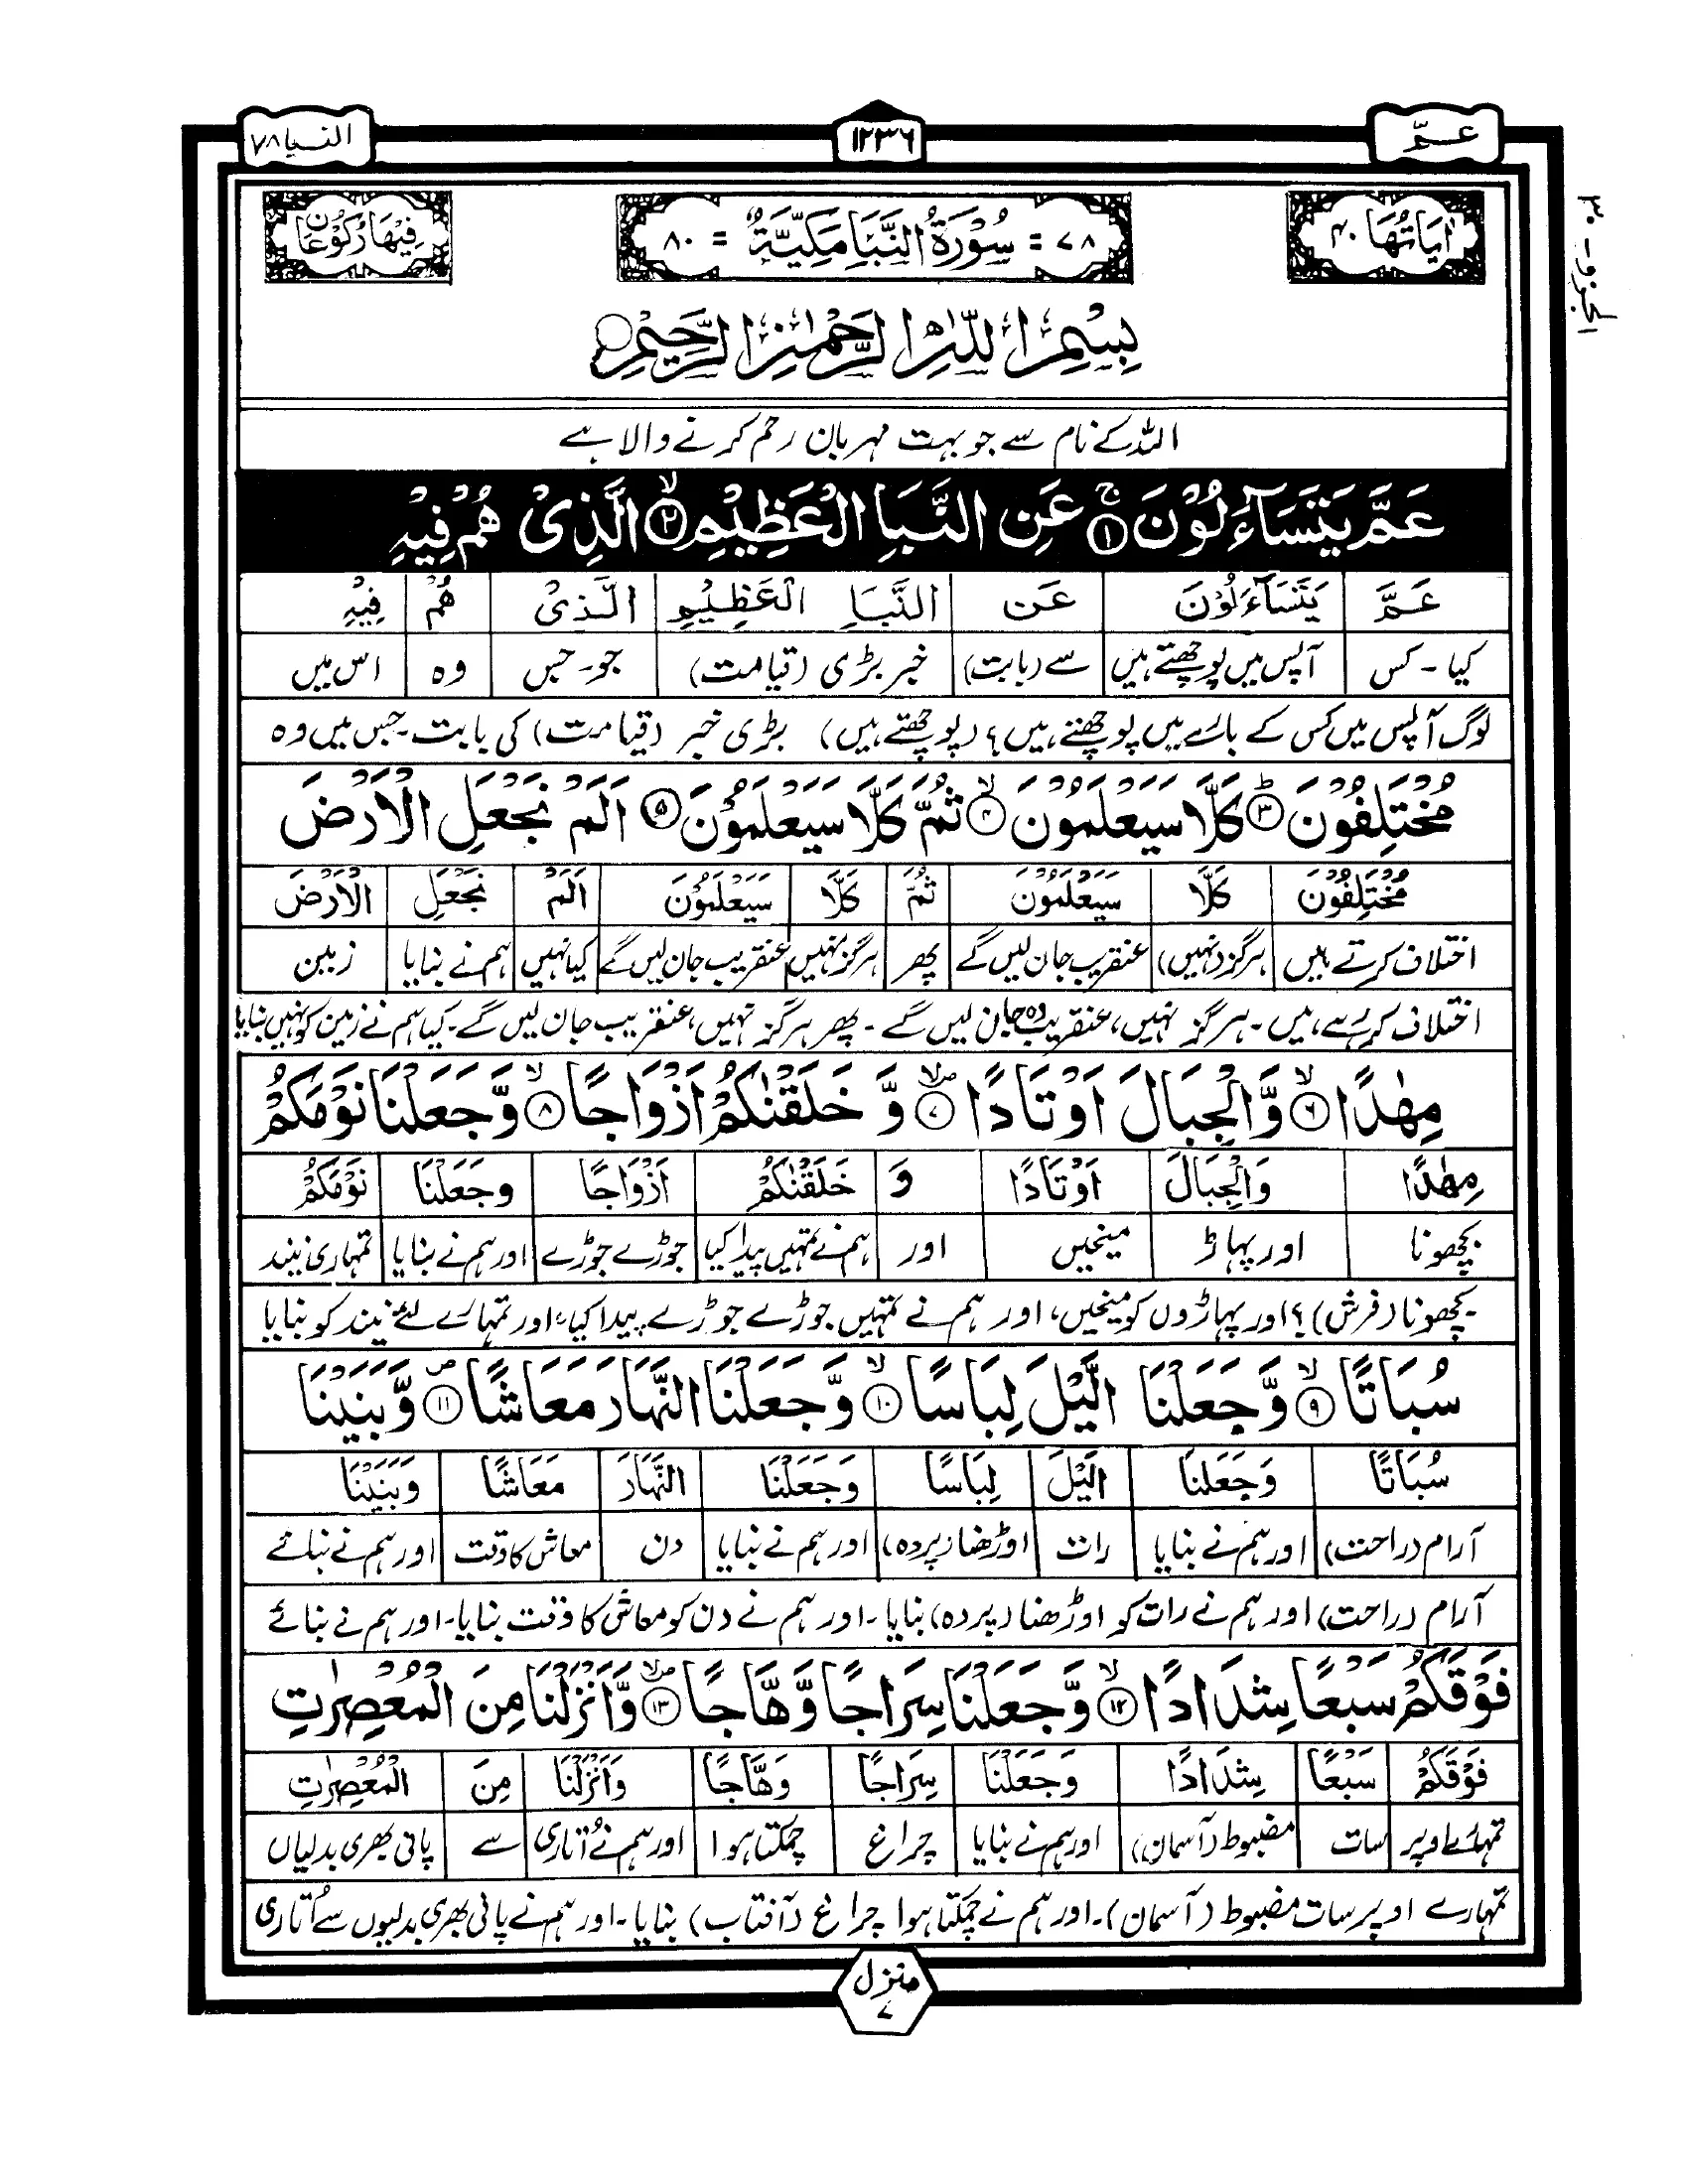 عـمّ
١٢٣٦
النبا ٧٨
الجزو - ٣٠
اٰیَاتُهَا ٤٠
٧٨ = سُوْرَةُ النَّبَاِ مَكِّيَّةٌ = ٨٠
فِیْهَا رُكُوْعَانِ
بِسْمِ اللّٰهِ الرَّحْمٰنِ الرَّحِیْمِ
اللہ کے نام سے جو بہت مہربان رحم کرنے والا ہے
عَمَّ یَتَسَآءَلُوْنَ ۚ﴿۱﴾ عَنِ النَّبَاِ الْعَظِیْمِ ۙ﴿۲﴾ الَّذِیْ هُمْ فِیْهِ
عَمَّ یَتَسَآءَلُوْنَ عَنِ النَّبَاِ الْعَظِیْمِ الَّذِیْ هُمْ فِیْهِ
کیا - کس آپس میں پوچھتے ہیں سے (بابت) خبر بڑی (قیامت) جو - جس وہ اس میں
لوگ آپس میں کس کے بارے میں پوچھتے ہیں؟ (پوچھتے ہیں) بڑی خبر (قیامت) کی بابت - جس میں وہ
مُخْتَلِفُوْنَ ؕ﴿۳﴾ كَلَّا سَیَعْلَمُوْنَ ۙ﴿۴﴾ ثُمَّ كَلَّا سَیَعْلَمُوْنَ ﴿۵﴾ اَلَمْ نَجْعَلِ الْاَرْضَ
مُخْتَلِفُوْنَ كَلَّا سَیَعْلَمُوْنَ ثُمَّ كَلَّا سَیَعْلَمُوْنَ اَلَمْ نَجْعَلِ الْاَرْضَ
اختلاف کرتے ہیں ہرگز (نہیں) عنقریب جان لیں گے پھر ہرگز نہیں عنقریب جان لیں گے کیا نہیں ہم نے بنایا زمین
اختلاف کر رہے ہیں - ہرگز نہیں، عنقریب وہ جان لیں گے - پھر ہرگز نہیں، عنقریب جان لیں گے - کیا ہم نے زمین کو نہیں بنایا
مِهٰدًا ۙ﴿۶﴾ وَّالْجِبَالَ اَوْتَادًا ۪ۙ﴿۷﴾ وَّ خَلَقْنٰكُمْ اَزْوَاجًا ۙ﴿۸﴾ وَّجَعَلْنَا نَوْمَكُمْ
مِهٰدًا وَالْجِبَالَ اَوْتَادًا وَ خَلَقْنٰكُمْ اَزْوَاجًا وَجَعَلْنَا نَوْمَكُمْ
بچھونا اور پہاڑ میخیں اور ہم نے تمہیں پیدا کیا جوڑے جوڑے اور ہم نے بنایا تمہاری نیند
بچھونا (فرش)؟ اور پہاڑوں کو میخیں، اور ہم نے تمہیں جوڑے جوڑے پیدا کیا، اور تمہارے لئے نیند کو بنایا
سُبَاتًا ۙ﴿۹﴾ وَّجَعَلْنَا الَّیْلَ لِبَاسًا ۙ﴿۱۰﴾ وَّجَعَلْنَا النَّهَارَ مَعَاشًا ۪﴿۱۱﴾ وَّبَنَیْنَا
سُبَاتًا وَجَعَلْنَا الَّیْلَ لِبَاسًا وَجَعَلْنَا النَّهَارَ مَعَاشًا وَبَنَیْنَا
آرام (راحت) اور ہم نے بنایا رات اوڑھنا (پردہ) اور ہم نے بنایا دن معاش کا وقت اور ہم نے بنائے
آرام (راحت) اور ہم نے رات کو اوڑھنا (پردہ) بنایا - اور ہم نے دن کو معاش کا وقت بنایا - اور ہم نے بنائے
فَوْقَكُمْ سَبْعًا شِدَادًا ۙ﴿۱۲﴾ وَّجَعَلْنَا سِرَاجًا وَّهَّاجًا ۪ۙ﴿۱۳﴾ وَّاَنْزَلْنَا مِنَ الْمُعْصِرٰتِ
فَوْقَكُمْ سَبْعًا شِدَادًا وَجَعَلْنَا سِرَاجًا وَهَّاجًا وَاَنْزَلْنَا مِنَ الْمُعْصِرٰتِ
تمہارے اوپر سات مضبوط (آسمان) اور ہم نے بنایا چراغ چمکتا ہوا اور ہم نے اُتاری سے پانی بھری بدلیاں
تمہارے اوپر سات مضبوط (آسمان) - اور ہم نے چمکتا ہوا چراغ (آفتاب) بنایا - اور ہم نے پانی بھری بدلیوں سے اُتاری
منزل
٧